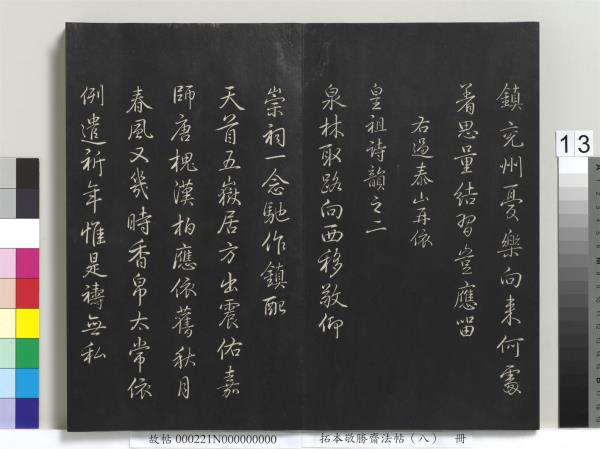 鎮兗州憂樂向來何處
著思量結習豈應留
右過泰山再依
皇祖詩韻之二
泉林取路向西移敬仰
崇祠一念馳作鎮配
天首五嶽居方出震佑嘉
師唐槐漢柏應依舊秋月
春風又幾時香帛太常依
例遣祈年惟是禱無私
13
故帖 000221N000000000
拓本敬勝齋法帖（八） 冊